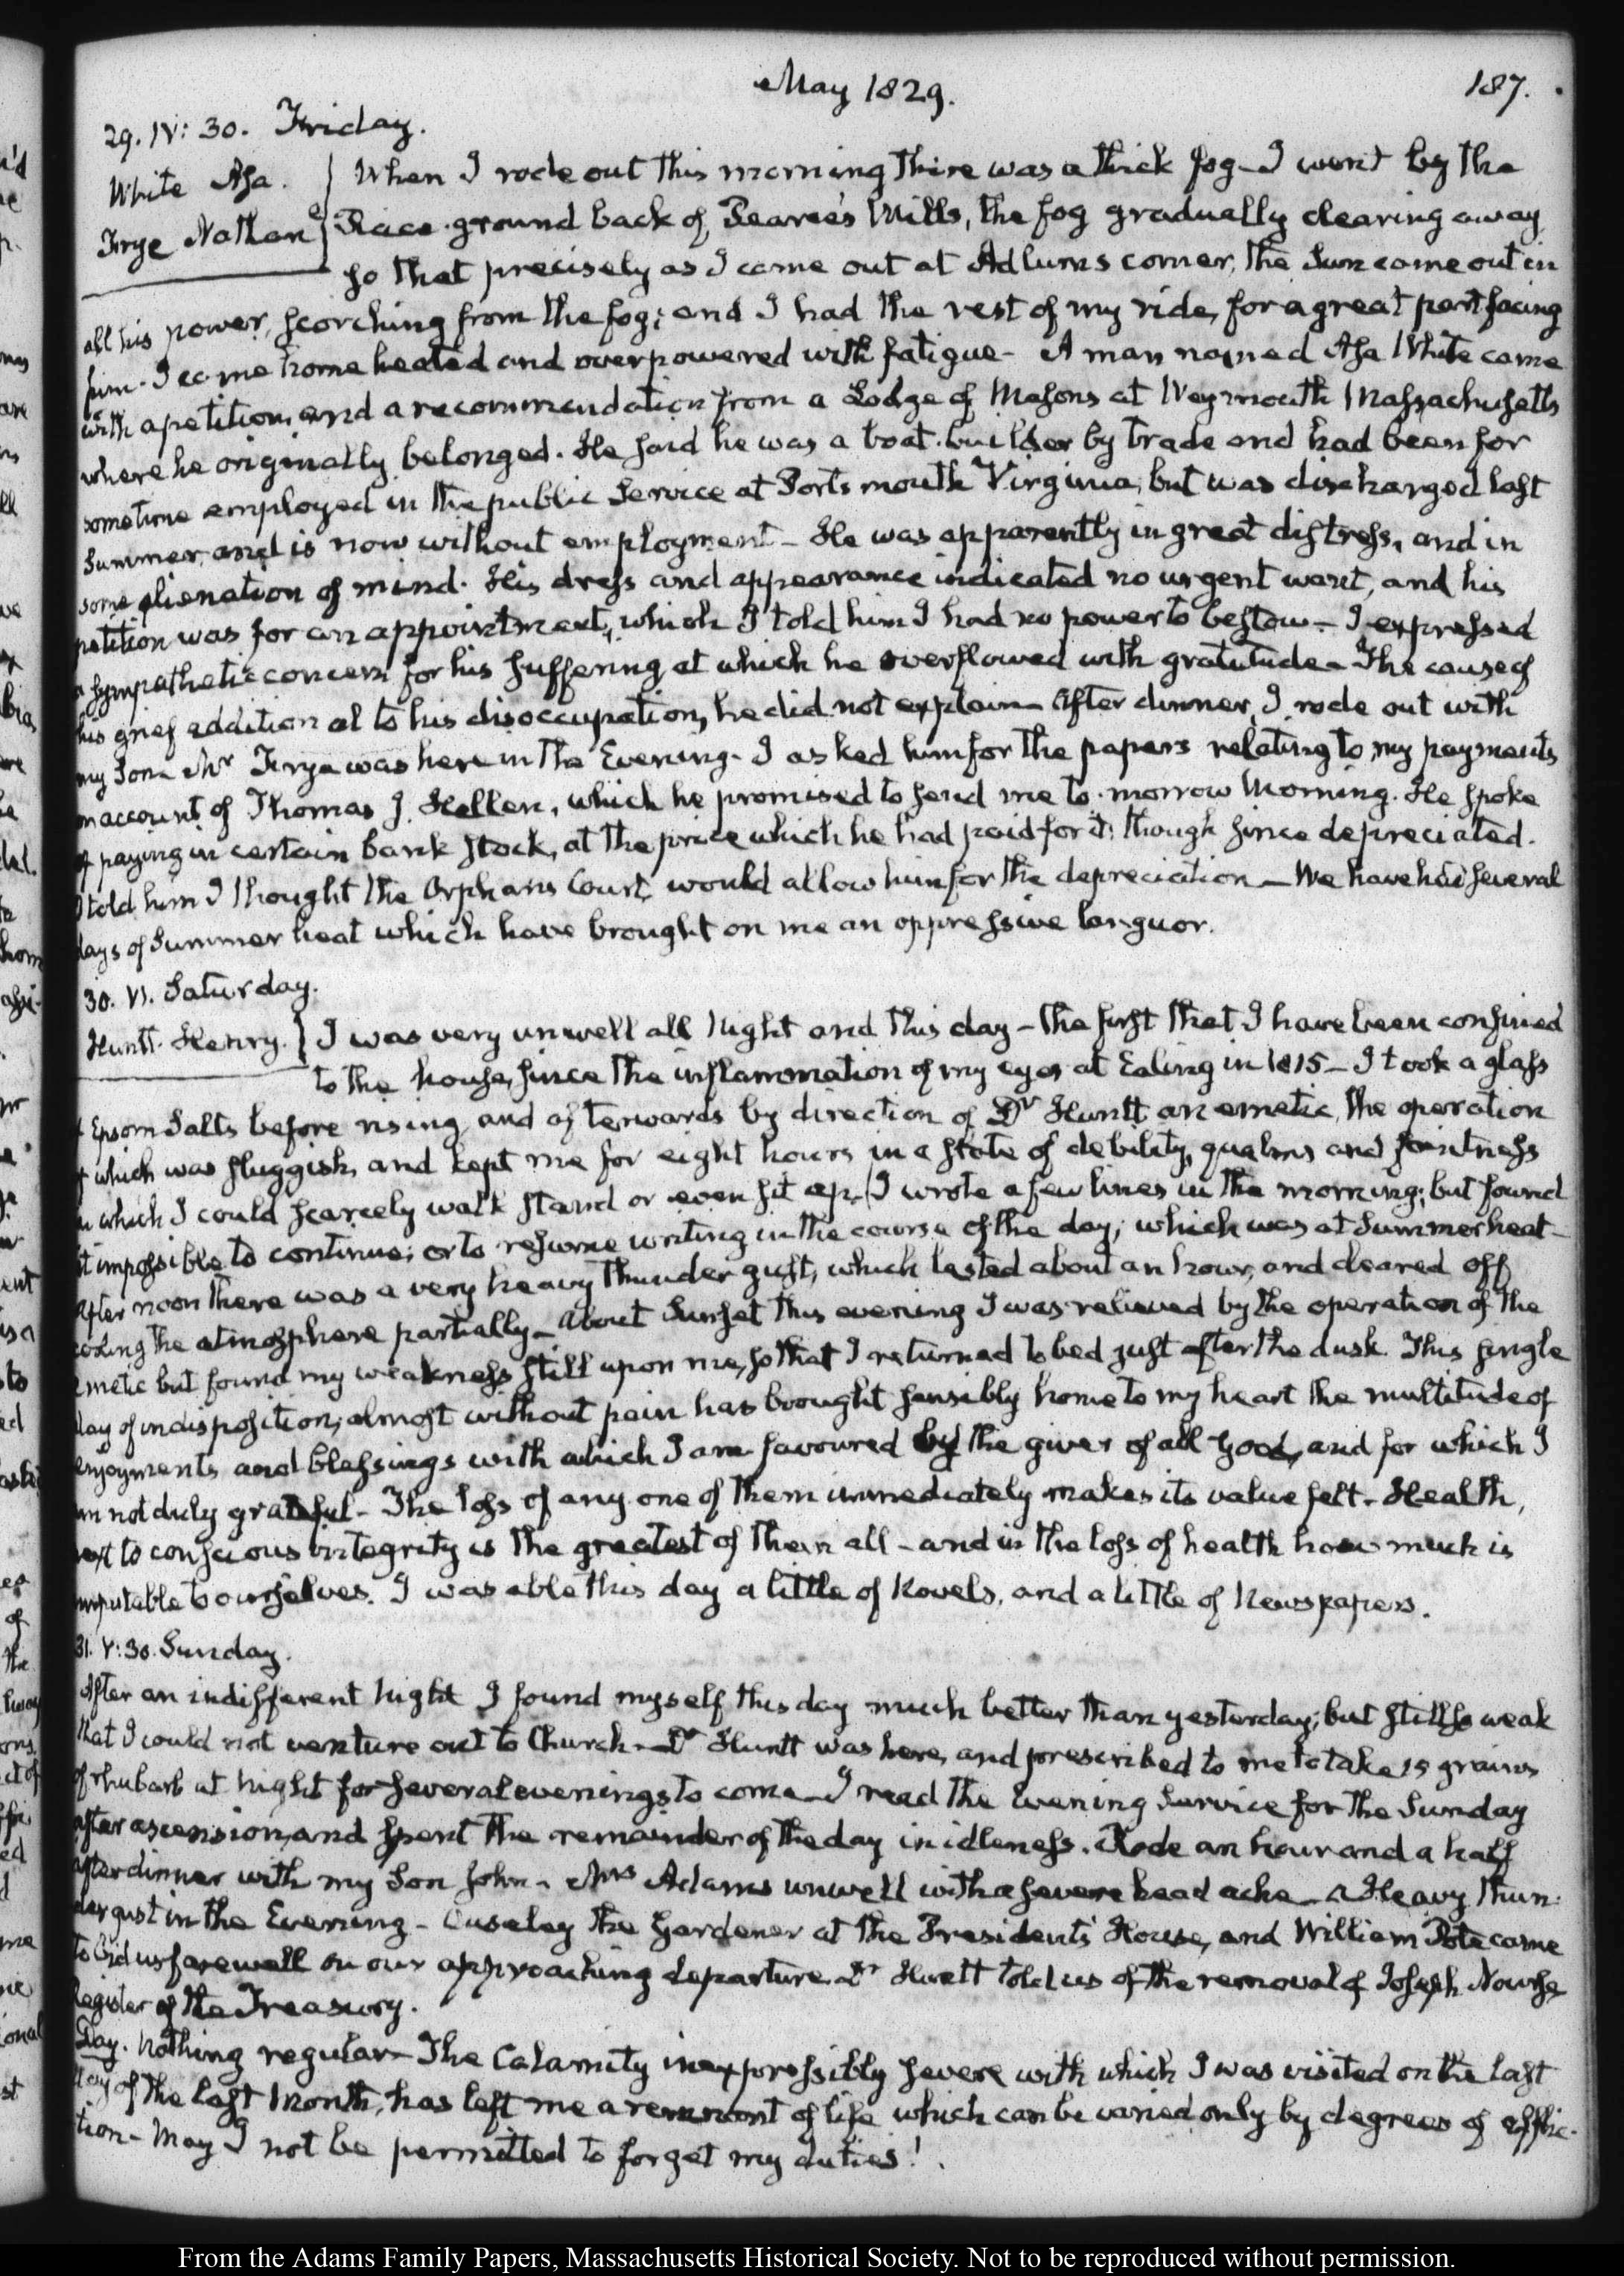 May 1829.
187.
29. IV: 30. Friday.
White Asa.
Frye Nathanl
When I rode out this morning there was a thick fog – I went by the
Race-ground back of Pearce's Mills, the fog gradually clearing away
so that precisely as I came out at Adlums corner, the Sun came out in
all his power, scorching from the fog; and I had the rest of my ride, for a great part facing
him. I came home heated and overpowered with fatigue – A man named Asa White came
with a petition, and a recommendation from a Lodge of Masons at Weymouth Massachusetts
where he originally belonged. He said he was a boat-builder by trade and had been for
sometime employed in the public Service at Portsmouth Virginia; but was discharged last
Summer, and is now without employment – He was apparently in great distress, and in
some alienation of mind. His dress and appearance indicated no urgent want, and his
petition was for an appointment, which I told him I had no power to bestow – I expressed
a sympathetic concern for his suffering, at which he overflowed with gratitude – The cause of
his grief additional to his disoccupation, he did not explain – After dinner, I rode out with
my Son – Mr Frye was here in the Evening – I asked him for the papers relating to my payments
on account of Thomas J. Hellen, which he promised to send me to-morrow Morning. He spoke
of paying in certain bank stock, at the price which he had paid for it; though since depreciated.
I told him I thought the Orphans Court would allow him for the depreciation – We have had several
days of Summer heat which have brought on me an oppressive languor.
30. VI. Saturday.
Huntt. Henry.
I was very unwell all Night and this day – the first that I have been confined
to the house, since the inflammation of my eyes at Ealing in 1815 – I took a glass
of Epsom Salts before rising, and afterwards by direction of Dr Huntt an emetic, the operation
of which was sluggish, and kept me for eight hours in a state of debility, qualms and faintness
in which I could scarcely walk stand or even sit up. I wrote a few lines in the morning; but found
it impossible to continue; or to resume writing in the course of the day; which was at Summer heat –
After noon there was a very heavy Thunder gust, which lasted about an hour, and cleared off
cooling the atmosphere partially – About Sunset this evening I was relieved by the operation of the
emetic but found my weakness still upon me, so that I returned to bed just after the dusk. This single
day of indisposition, almost without pain has brought sensibly home to my heart the multitude of
enjoyments and blessings with which I am favoured by the giver of all good, and for which I
am not duly grateful – The loss of any one of them immediately makes its value felt – Health,
next to conscious integrity is the greatest of them all – and in the loss of health how much is
imputable to ourselves. I was able this day a little of Novels, and a little of Newspapers.
31. V: 30. Sunday.
After an indifferent Night I found myself this day much better than yesterday; but still so weak
that I could not venture out to Church – Dr Huntt was here, and prescribed to me to take 15 grains
of rhubarb at Night for several evenings to come – I read the Evening Service for the Sunday
after ascension, and spent the remainder of the day in idleness. Rode an hour and a half
after dinner with my Son John – Mrs Adams unwell with a severe head ache – A Heavy Thun-
der gust in the Evening – Ouseley the Gardener at the President's House, and William Pote came
to bid us farewell on our approaching departure. Dr Huntt told us of the removal of Joseph Nourse,
Register of the Treasury.
Day. Nothing regular – The Calamity inexpressibly severe with which I was visited on the last
day of the last Month, has left me a remnant of life which can be varied only by degrees of afflic-
tion – May I not be permitted to forget my duties!
From the Adams Family Papers, Massachusetts Historical Society. Not to be reproduced without permission.